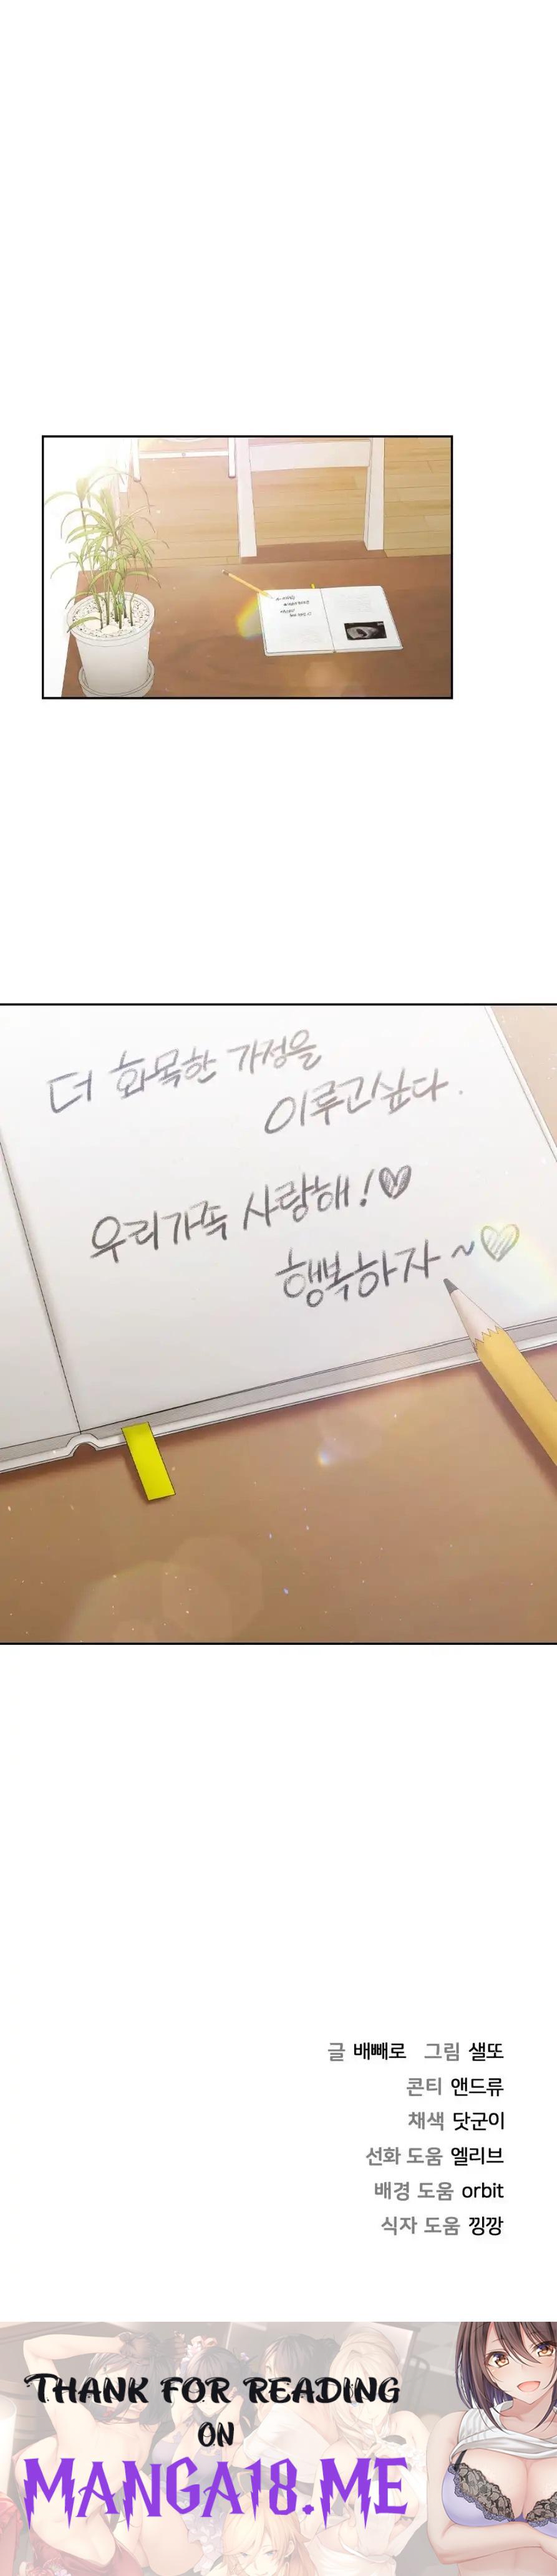 더 화목한 가정을
이루고싶다.
우리가족 사랑해!♡
행복하자~♡
글 배빼로 그림 샐또
콘티 앤드류
채색 닷군이
선화 도움 엘리브
배경 도움 orbit
식자 도움 낑깡
THANK FOR READING
ON
MANGA18.ME